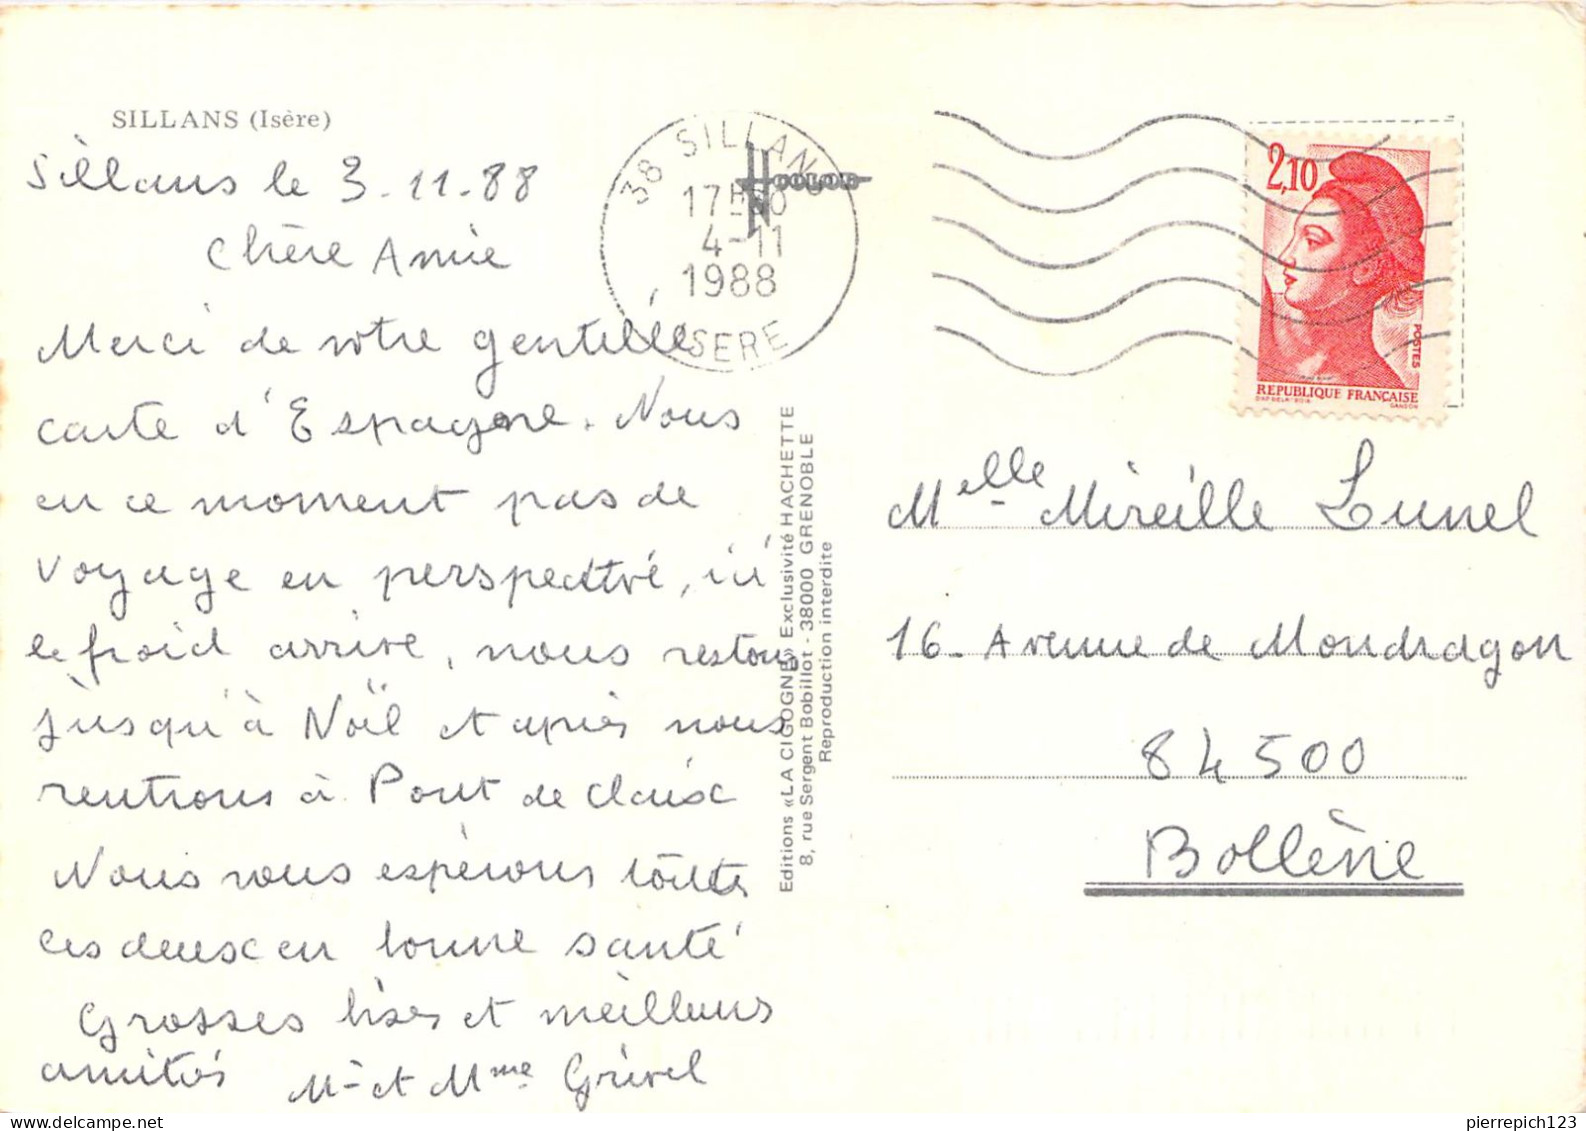 SILLANS (Isère)
Sillans le 3-11-88
Chère Amie
Merci de votre gentille
carte d'Espagne. Nous
en ce moment pas de
voyage en perspective, ici
le froid arrive, nous restons
jusqu'à Noël et après nous
rentrons à Pont de Claix
Nous vous espérons toutes
les deux en bonne santé
Grosses bises et meilleures
amitiés M- et Mme Grivel
38 SILLANS
17H30
4-11
1988
ISERE
COLOR
Editions «LA CIGOGNE» Exclusivité HACHETTE
8, rue Sergent Bobillot - 38000 GRENOBLE
Reproduction interdite
2,10
POSTES
REPUBLIQUE FRANÇAISE
GANDON
Melle Mireille Lunel
16- Avenue de Mondragon
84500
Bollène
pierrepich123